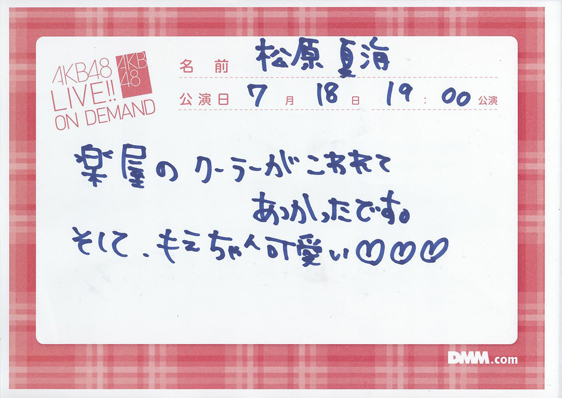 AKB48
LIVE!!
ON DEMAND
AKB
48
名前 松原夏海
公演日 7月18日 19:00公演
楽屋のクーラーがこわれて
あつかったです。
そして、もえちゃん可愛い♡♡♡
DMM.com